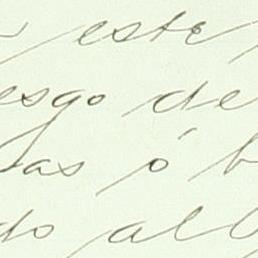 este
esgo de
as ó
do alb